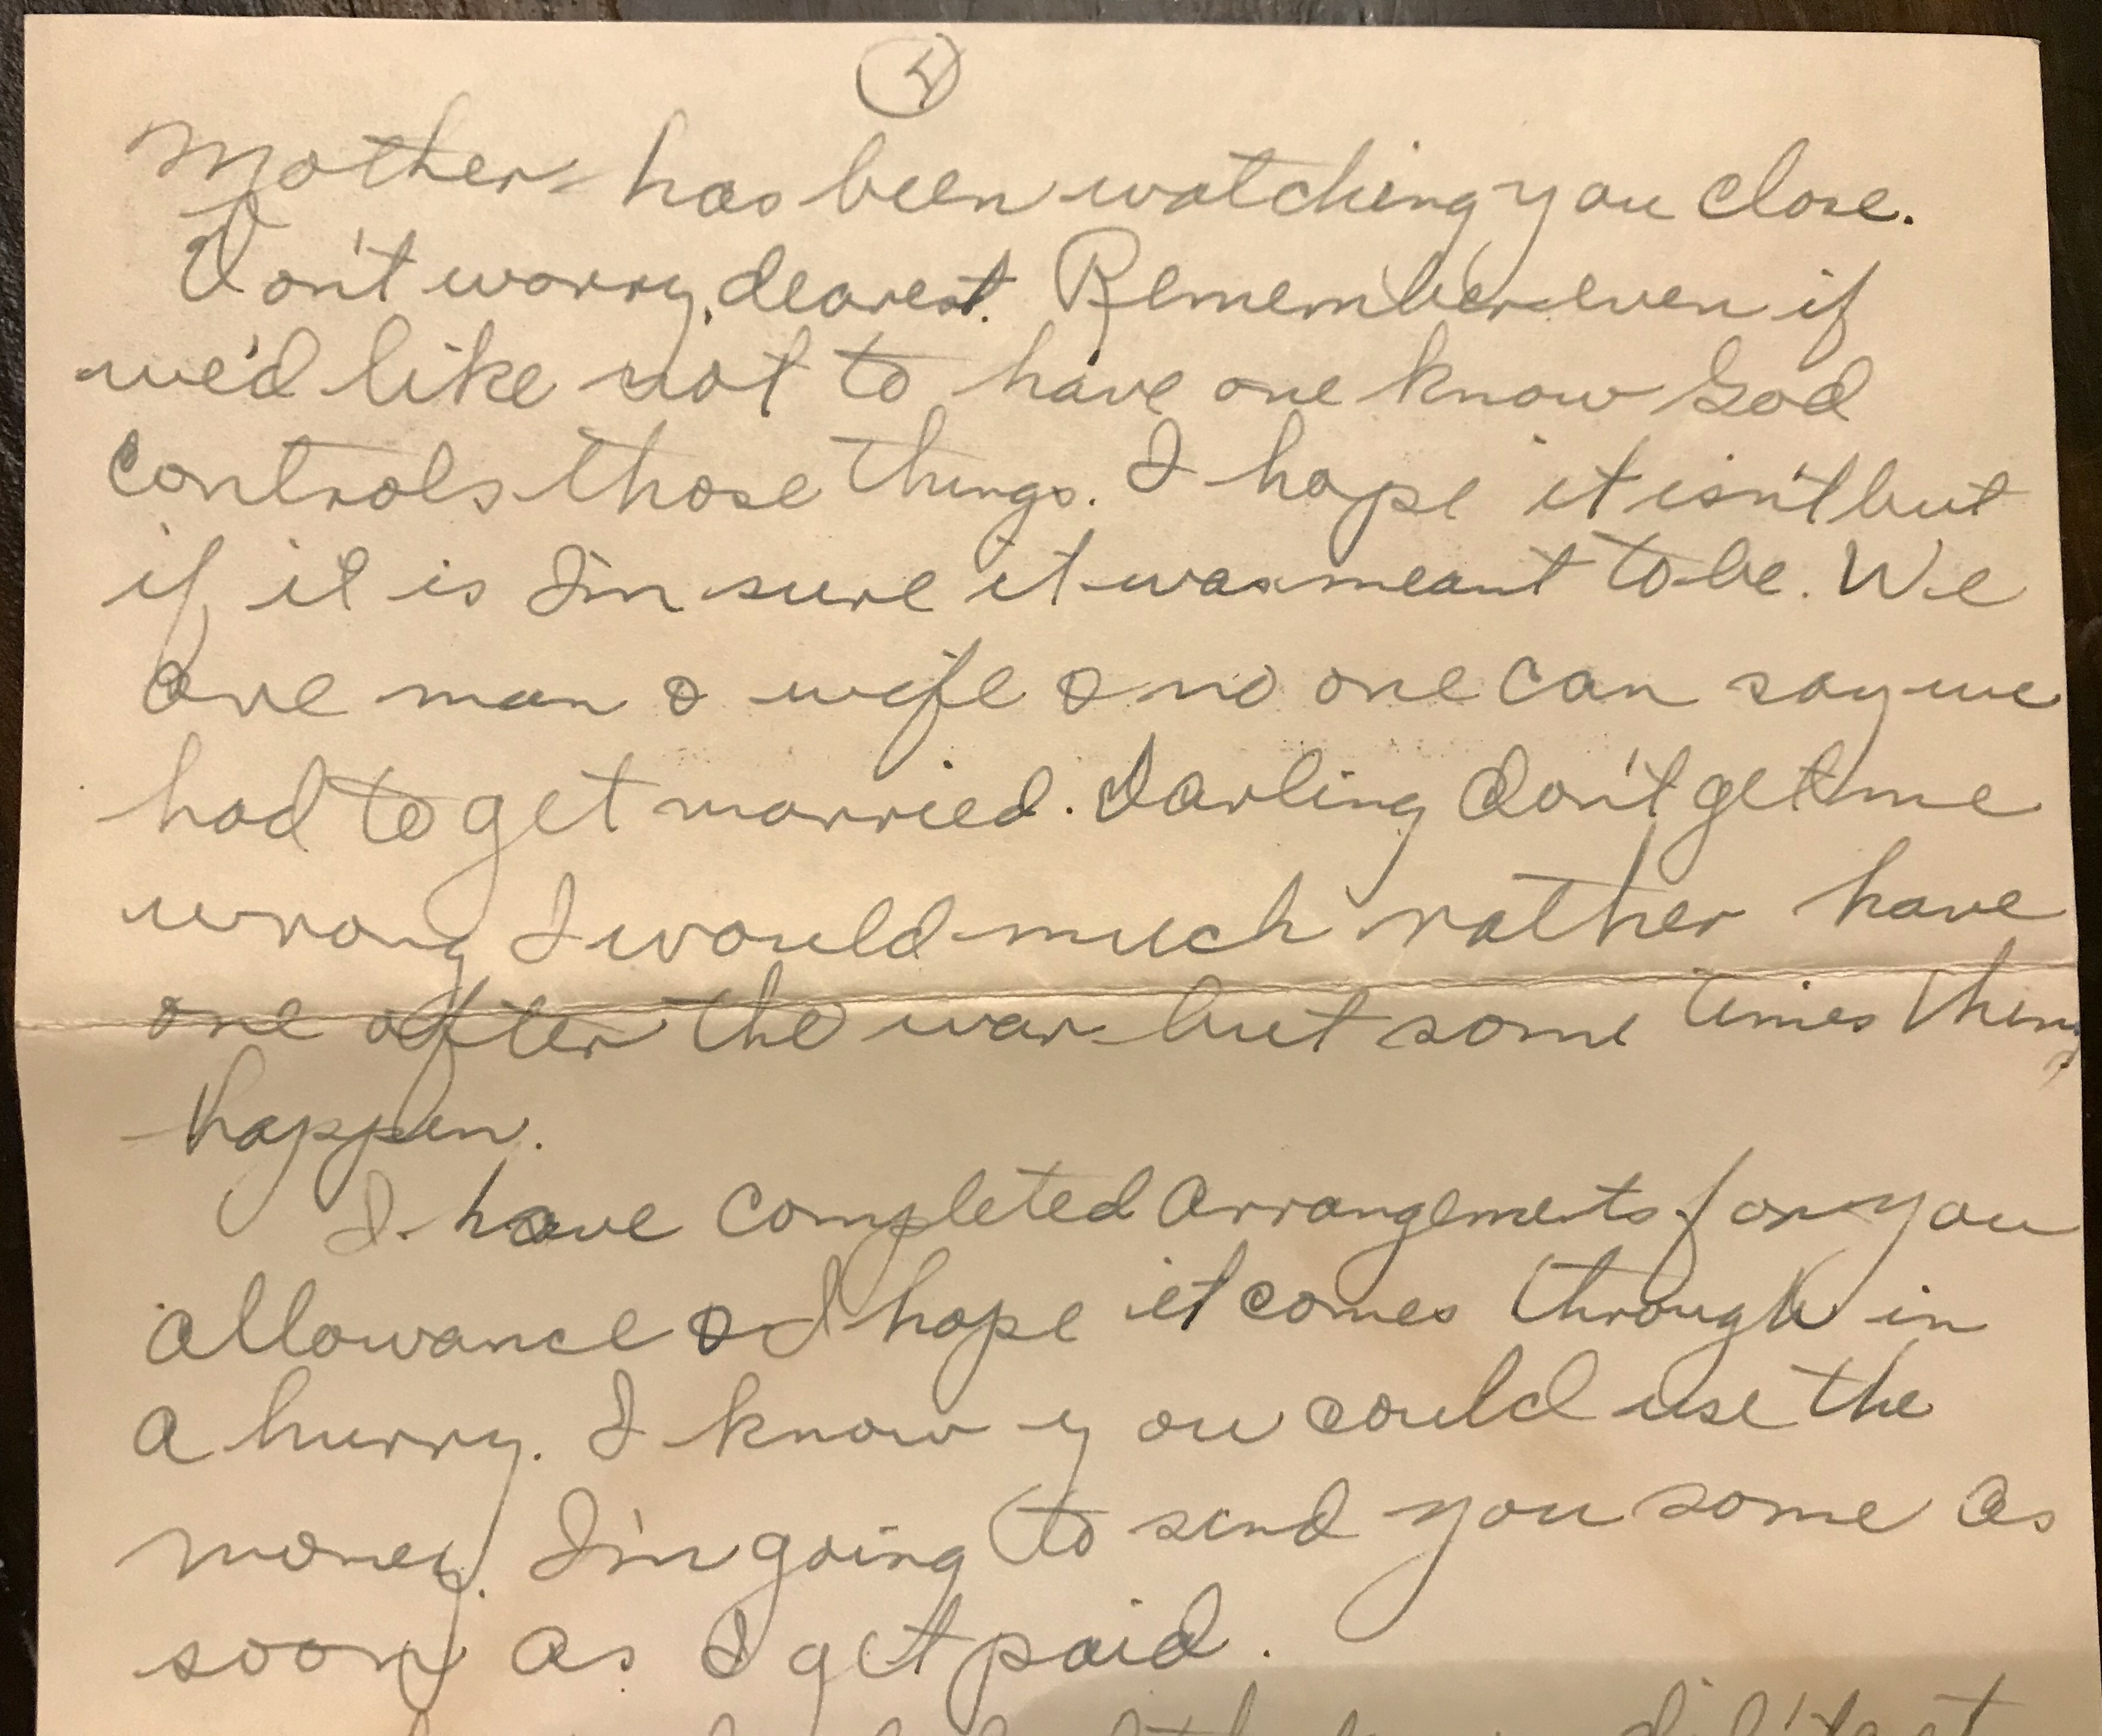 4
Mother has been watching you close.
Don't worry, dearest. Remember even if
we'd like not to have one know God
controls those things. I hope it isn't but
if it is I'm sure it was meant to be. We
are man & wife & no one can say we
had to get married. Darling don't get me
wrong I would much rather have
one after the war but some times things
happen.
I have completed arrangements for you
allowance & I hope it comes through in
a hurry. I know you could use the
money. I'm going to send you some as
soon as I get paid.
didn't get